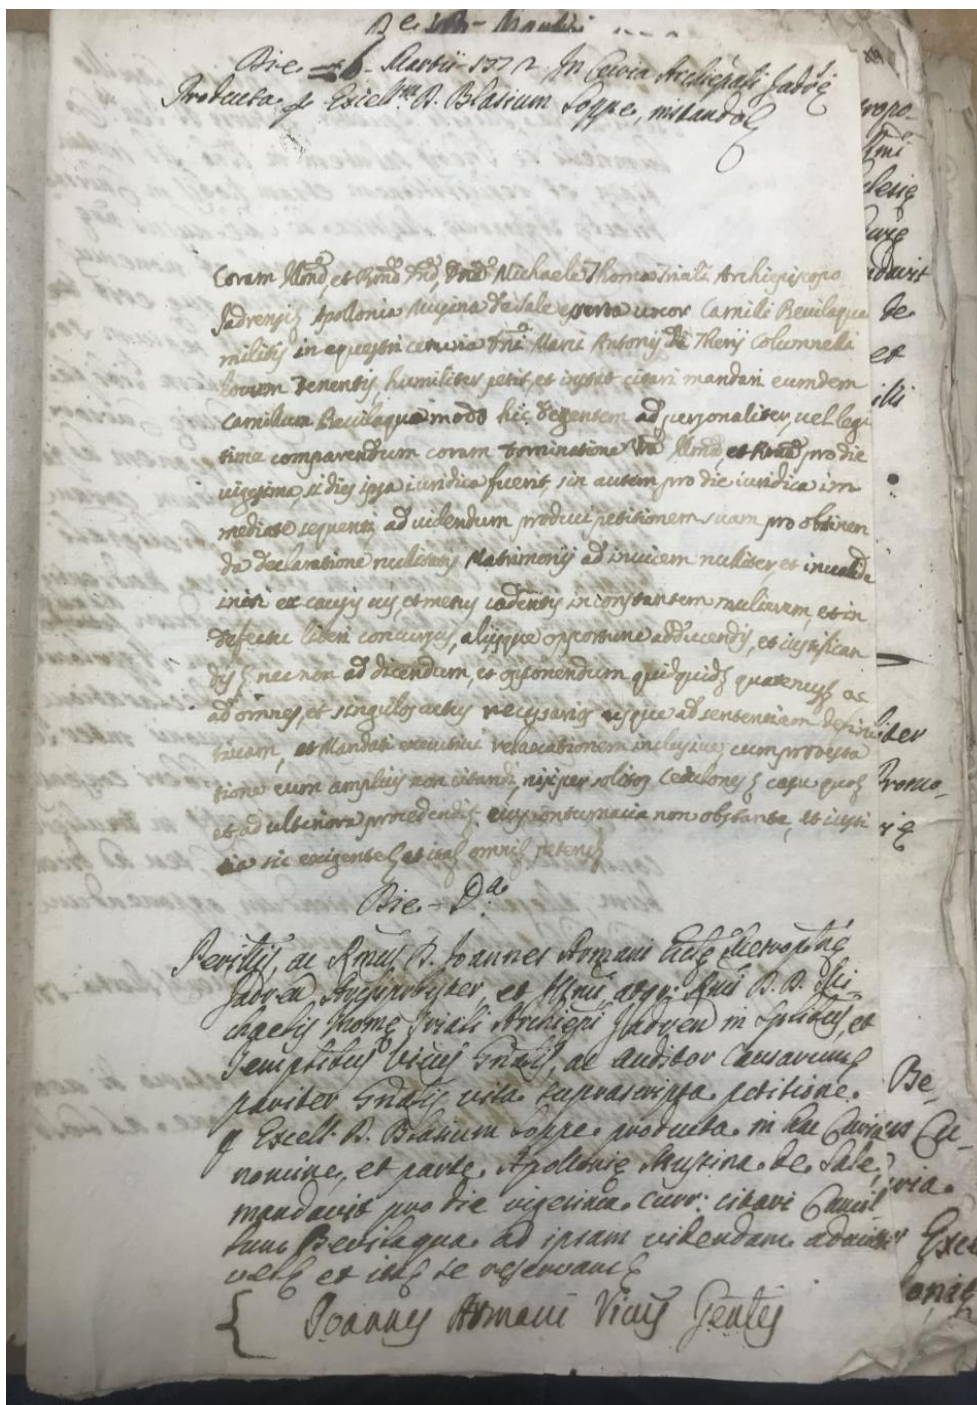 Die 16 Martii 1772 In Curia Archiepali Jadrę
Producta p Excellm D. Blasium Soppe, instandoq
Coram Illmo, et Rmo Dno, Dno Michaele Thoma Triali Archiepiscopo
Jadrensi Apollonia Musina de Sale asserta uxor Camili Beuilaqua
militis in equestri ceturia Dni Marci Antonij De Therij Columnella
locum tenentis, humiliter petit, et instat citari mandari eumdem
Camillum Beuilaqua modo hic degentem ad personaliter, uel legi
time comparendum coram Dominatione Vra Illma, et Rma pro die
uigesima, si dies ipsa iuridica fuerit, sin autem pro die iuridica im
mediate sequenti ad uidendum produci petitionem suam pro obtinen
da declaratione nullitatis Matrimonij ad inuicem nulliter, et inualide
initi ex causis uis, et metus cadentis in constantem mulierem, et in
defectu liberi concursus, alijsque opportune adducendis, et iustifican
dis nec non ad dicendum, et opponendum quidquid quatenus ac
ad omnes, et singulos actus necessarios usque ad sententiam defini
tiuam, et Mandati executiui relaxationem inclusiue, cum protesta
tione eum amplius non citandi, nisi per solitos Cedulones casu quo
et ad ulteriora procedendi eius contumacia non obstante, et iusti
tia sic exigente et ita omni petens
Die Da
Perillis, ac Rmus D. Joannes Armani Eccłę Metropnę
Jadren Archipresbyter, et Illmi atq Rmi D. D. Mi-
chaelis Thomę Triali Archiepi Jadren in Splibus, et
Templibus Vicus Gnalis, ac auditor Causarum
pariter Gnalis visa suprascripta petitione
p Excell. D. Blasium Soppe producta in hac Curia
nomine, et parte Apollonię Musina de Sale,
mandavit pro die vigesima curr: citari Camil
lum Bevilaqua ad ipsam videndam admitti
vel et ita se reservans
Joannes Armani Vicus Genlis